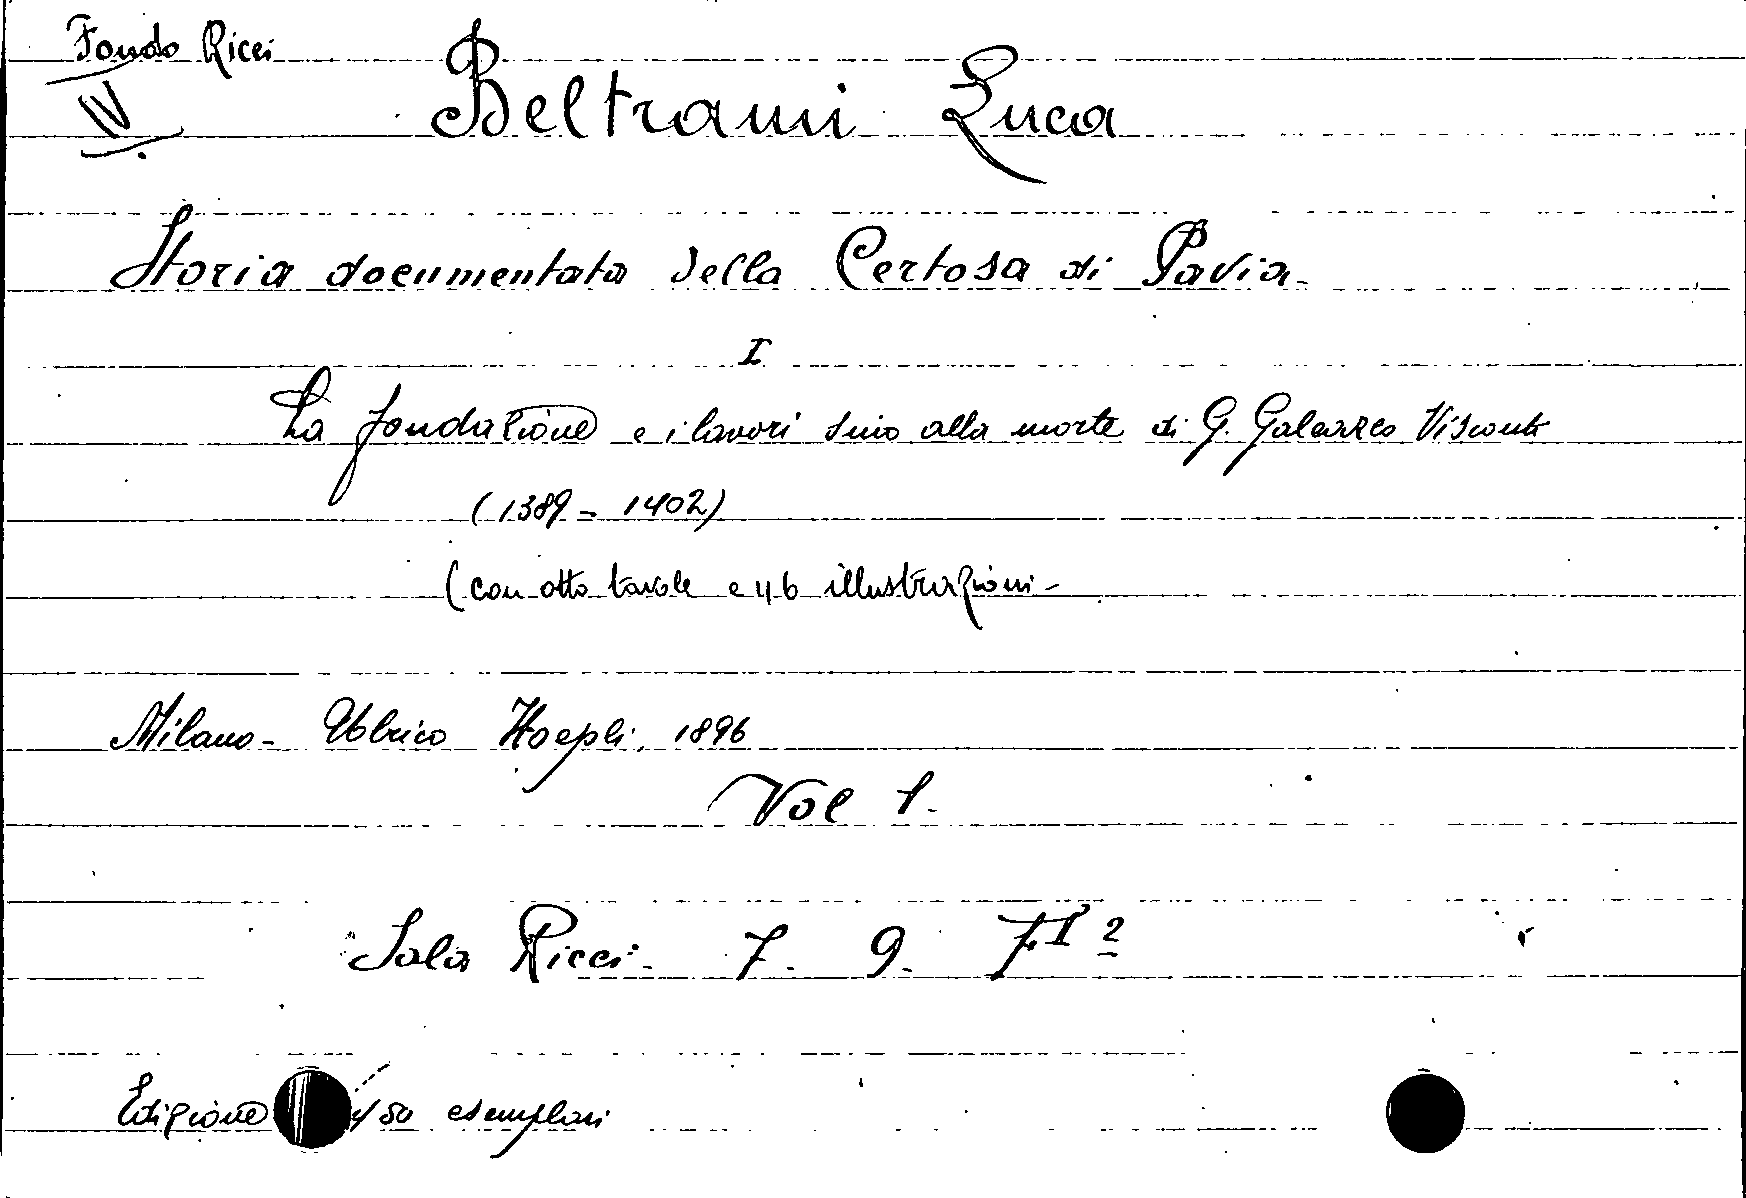 Fondo Ricci
IV.
Beltrami Luca
Storia documentata della Certosa di Pavia.
I
La fondazione e i lavori sino alla morte di G. Galeazzo Visconti
(1389 - 1402)
(con otto tavole e 46 illustrazioni -
Milano - Ulrico Hoepli. 1896
Vol 1.
Sala Ricci. 7. 9.
Edizione esemplari